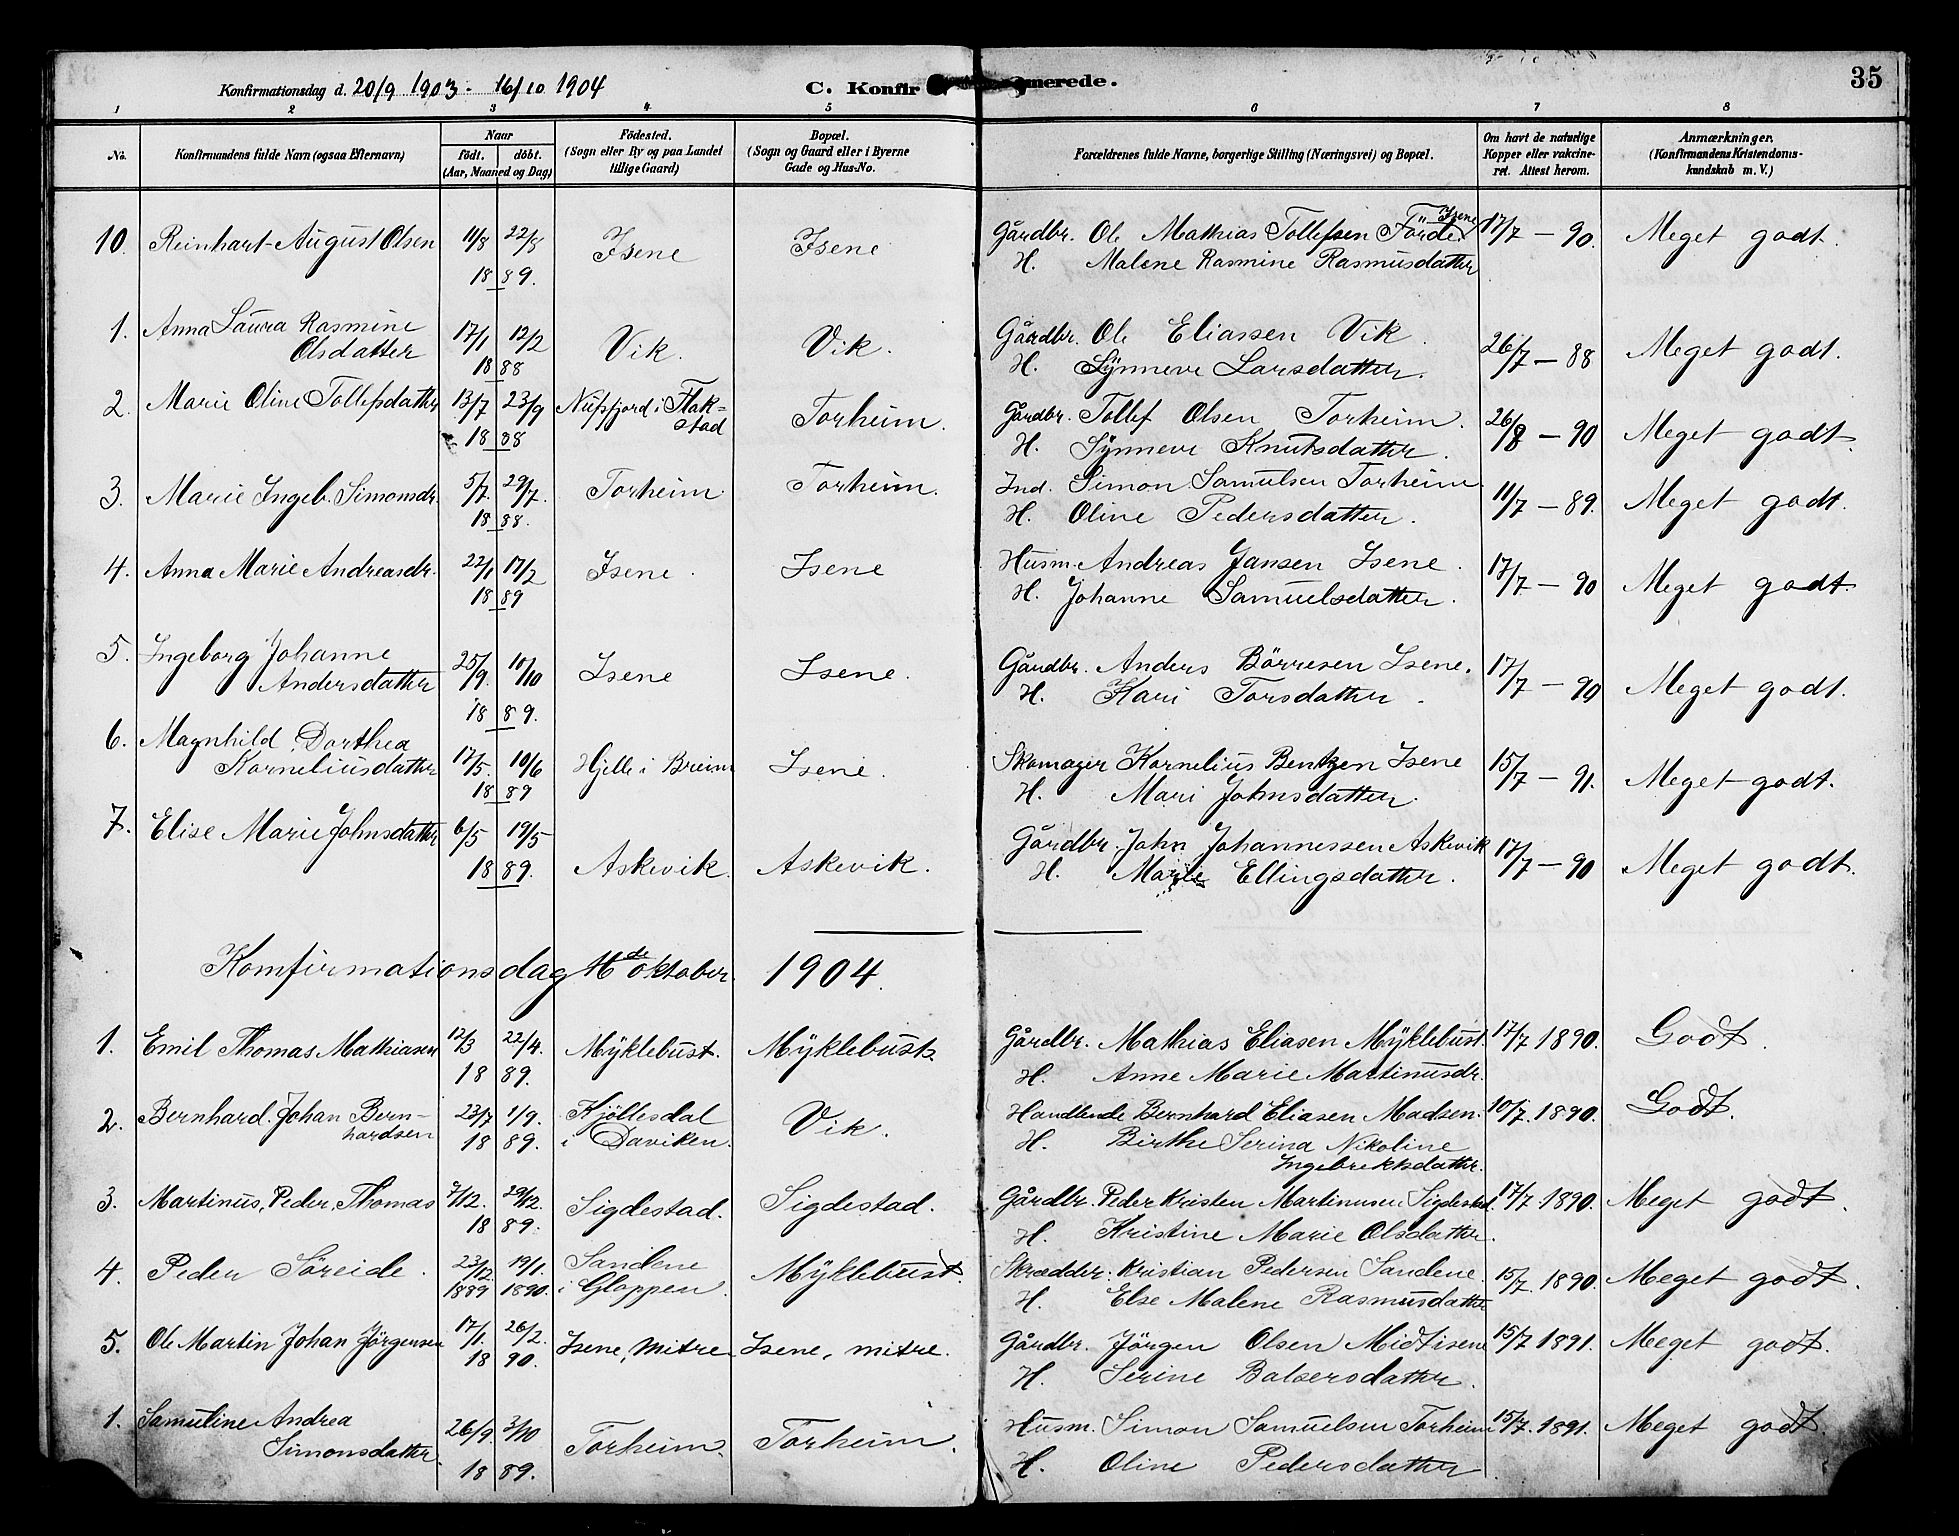 Konfirmationsdag d. 20/9 1903 - 16/10 1904 C. Konfirmerede. 35
1 2 3 4 5 6 7 8
No. Konfirmandens fulde Navn (ogsaa Efternavn) Naar født. døbt. (Aar, Maaned og Dag) Födested. (Sogn eller By og paa Landet tillige Gaard) Bopæl. (Sogn og Gaard eller i Byerne Gade og Hus-No. Forældrenes fulde Navne, borgerlige Stilling (Næringsvei) og Bopæl. Om havt de naturlige Kopper eller vakcineret. Attest herom. Anmærkninger. (Konfirmandens Kristendomskundskab m. V.)
10. Reinhart August Olsen 11/8 22/8 Isene Isene Gårdbr. Ole Mathias Tollefsen Förde Isene 17/7 - 90. Meget godt.
18 89. H. Malene Rasmine Rasmusdatter
1. Anna Laura Rasmine Olsdatter 17/1 12/2 Vik. Vik. Gårdbr. Ole Eliassen Vik. 26/7 - 88 Meget godt.
18 88 H. Synneve Larsdatter.
2. Marie Oline Tollefsdatter 13/7 23/9 Nufsfjord i Flakstad Torheim. Gårdbr. Tollef Olsen Torheim. 26/8 - 90 Meget godt.
18 88 H. Synneve Knutsdatter.
3. Marie Ingeb. Simonsdr. 5/7. 29/7. Torheim Torheim. Ind. Simon Samulsen Torheim 11/7 - 89. Meget godt.
18 88. H. Oline Pedersdatter.
4. Anna Marie Andreasdr. 22/1 17/2 Isene. Isene Husm. Andreas Jansen Isene. 17/7 - 90 Meget godt.
18 89 H. Johanne Samuelsdatter.
5. Ingeborg Johanne Andersdatter 25/9. 10/10 Isene Isene. Gårdbr. Anders Börresen Isene. 17/7 - 90 Meget godt.
18 89. H. Kari Torsdatter.
6. Magnhild Dorthea Korneliusdatter 17/5. 10/6 Hjelle i Breim Isene. Skomager Kornelius Bentzen Isene 15/7 - 91. Meget godt.
18 89 H. Mari Johnsdatter.
7. Elise Marie Johnsdatter 6/5 19/5 Askevik. Askevik. Gårdbr. John Johannessen Askevik 17/7 - 90 Meget godt.
18 89. H. Marie Ellingsdatter.
Konfirmationsdag 16de oktober 1904.
1. Emil Thomas Mathiasen 12/3 22/4. Myklebust. Myklebust. Gårdbr. Mathias Eliasen Myklebust. 17/7 1890. Godt.
18 89. H. Anne Marie Martinusdr.
2. Bernhard Johan Bernhardsen 23/7 1/9. Kjöllesdal i Daviken. Vik. Handlende Bernhard Eliasen Madsen. 10/7. 1890. Godt.
18 89. H. Birthe Serina Nikoline Ingebrektsdatter.
3. Martinus, Peder, Thomas 7/12. 29/12. Sigdestad. Sigdestad. Gårdbr. Peder Kristen Martinusen Sigdestad. 17/7 1890. Meget godt.
18 89. H. Kristine Marie Olsdatter.
4. Peder Söreide. 23/12. 19/1. Sandene i Gloppen. Myklebust. Skrædder. Kristian Pedersen Sandene. 15/7. 1890. Meget godt.
1889 1890. H. Else Malene Rasmusdatter
5. Ole Martin Johan Jörgensen 17/1. 26/2. Isene, mitre Isene, mitre. Gårdbr. Jörgen Olsen Midtisene 15/7 1891. Meget godt.
18 90. H. Serine Balsersdatter.
1. Samuline Andrea Simonsdatter. 26/9. 3/10 Torheim. Torheim. Husm. Simon Samuelsen Torheim 15/7. 1891. Meget godt.
18 89. H. Oline Pedersdatter